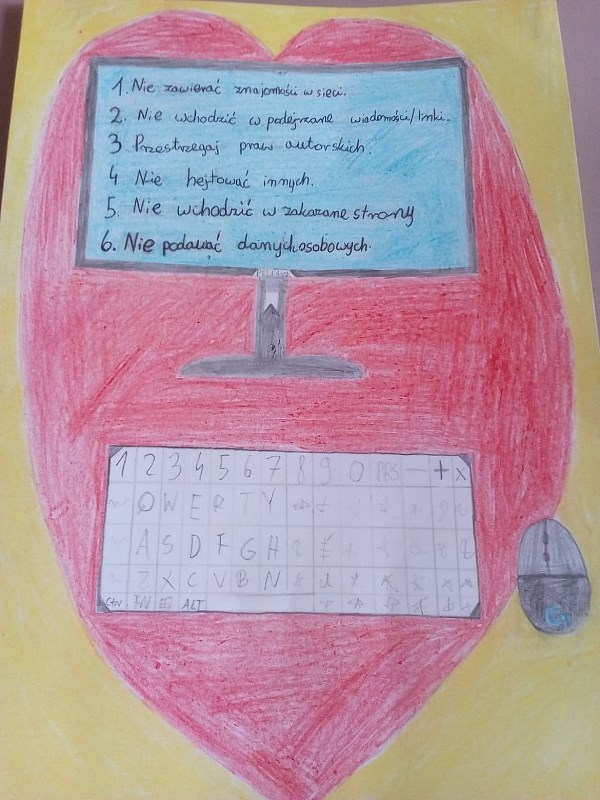 1. Nie zawierać znajomości w sieci.
2. Nie wchodzić w podejrzane wiadomości/linki.
3 Przestrzegaj praw autorskich.
4 Nie hejtować innych.
5. Nie wchodzić w zakazane strony
6. Nie podawać danych osobowych.
1 2 3 4 5 6 7 8 9 0 PRS — + x
Q W E R T Y
A S D F G H
Z X C V B N
Ctrl FN ALT
G